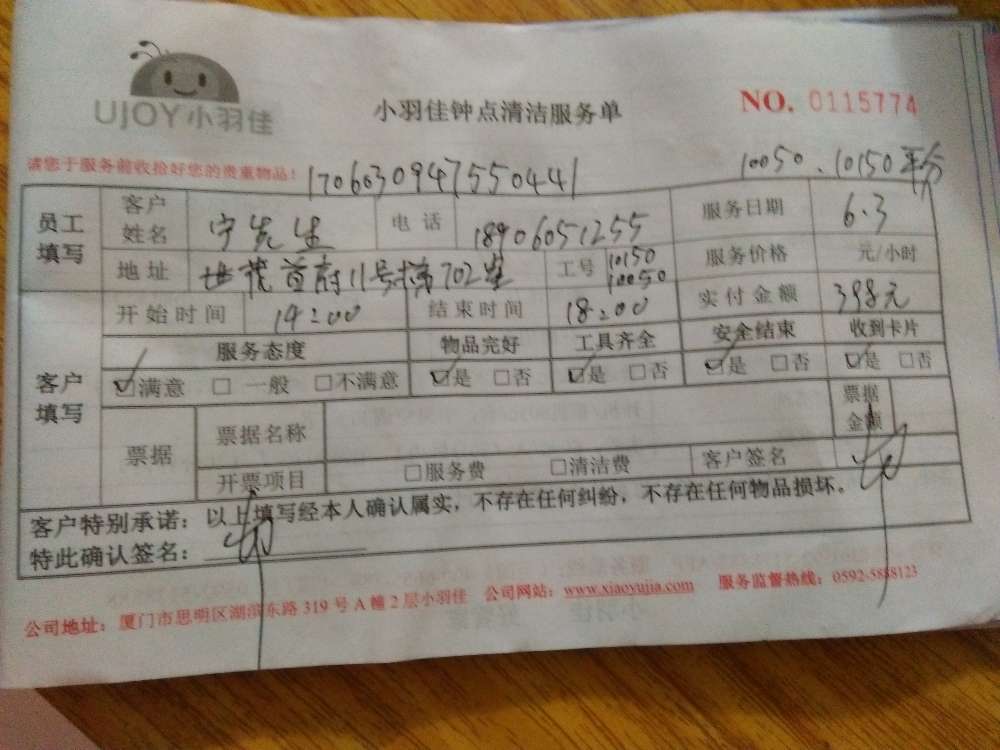 UJOY小羽佳
小羽佳钟点清洁服务单
NO. 0115774
请您于服务前收拾好您的贵重物品!
170603094755044 1
10050、10150平分
员工填写 客户姓名 宁先生 电话 18906051255 服务日期 6.3
地址 首府11号楼702室 工号 10150 10050 服务价格 元/小时
客户填写 开始时间 14:00 结束时间 18:00 实付金额 398元
服务态度 物品完好 工具齐全 安全结束 收到卡片
☑满意 □一般 □不满意 ☑是 □否 ☑是 □否 ☑是 □否 ☑是 □否
票据 票据名称 票据金额
开票项目 □服务费 □清洁费 客户签名
客户特别承诺：以上填写经本人确认属实，不存在任何纠纷，不存在任何物品损坏。
特此确认签名：
公司地址：厦门市思明区湖滨东路319号A幢2层小羽佳 公司网站：www.xiaoyujia.com 服务监督热线：0592-5888123